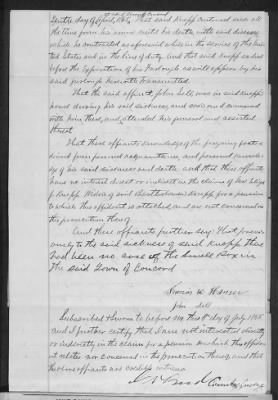 of said Ancient
Sixth day of April, 1865, That said Knapp continued sick all
the time from his said until his death, with said disease,
which he contracted as aforesaid while in the service of the Uni
ted States and in the line of duty, and that said Knapp sailed
before the Expiration of his Furlough as will appear by his
said furlough herewith transmitted.
That the said affiant John Sell, was in said Knapp's
house during his said sickness, and saw and conversed
with him there, and attended his funeral and assisted
thereat.
That these affiants knowledge of the foregoing facts is
derived from personal acquaintance, and personal knowledge
of his said sickness and death and that these affiants
have no interest direct or indirect in the claim of
Knapp Widow of said Knapp for a pension
to which this affidavit is attached and are not concerned in
the prosecution thereof.
And these affiants further say That previ
ously to the said sickness of said Knapp there
had been no case of the Small Pox in
the said Town of Concord
Hanson
John Sell
Subscribed & sworn to before me this 8th day of July 1865
and I further certify that I am not interested directly
or indirectly in the claim for a pension to which this affida
vit relates nor concerned in its prosecution thereof, and that
the above affiants are credible witnesses
County Judge